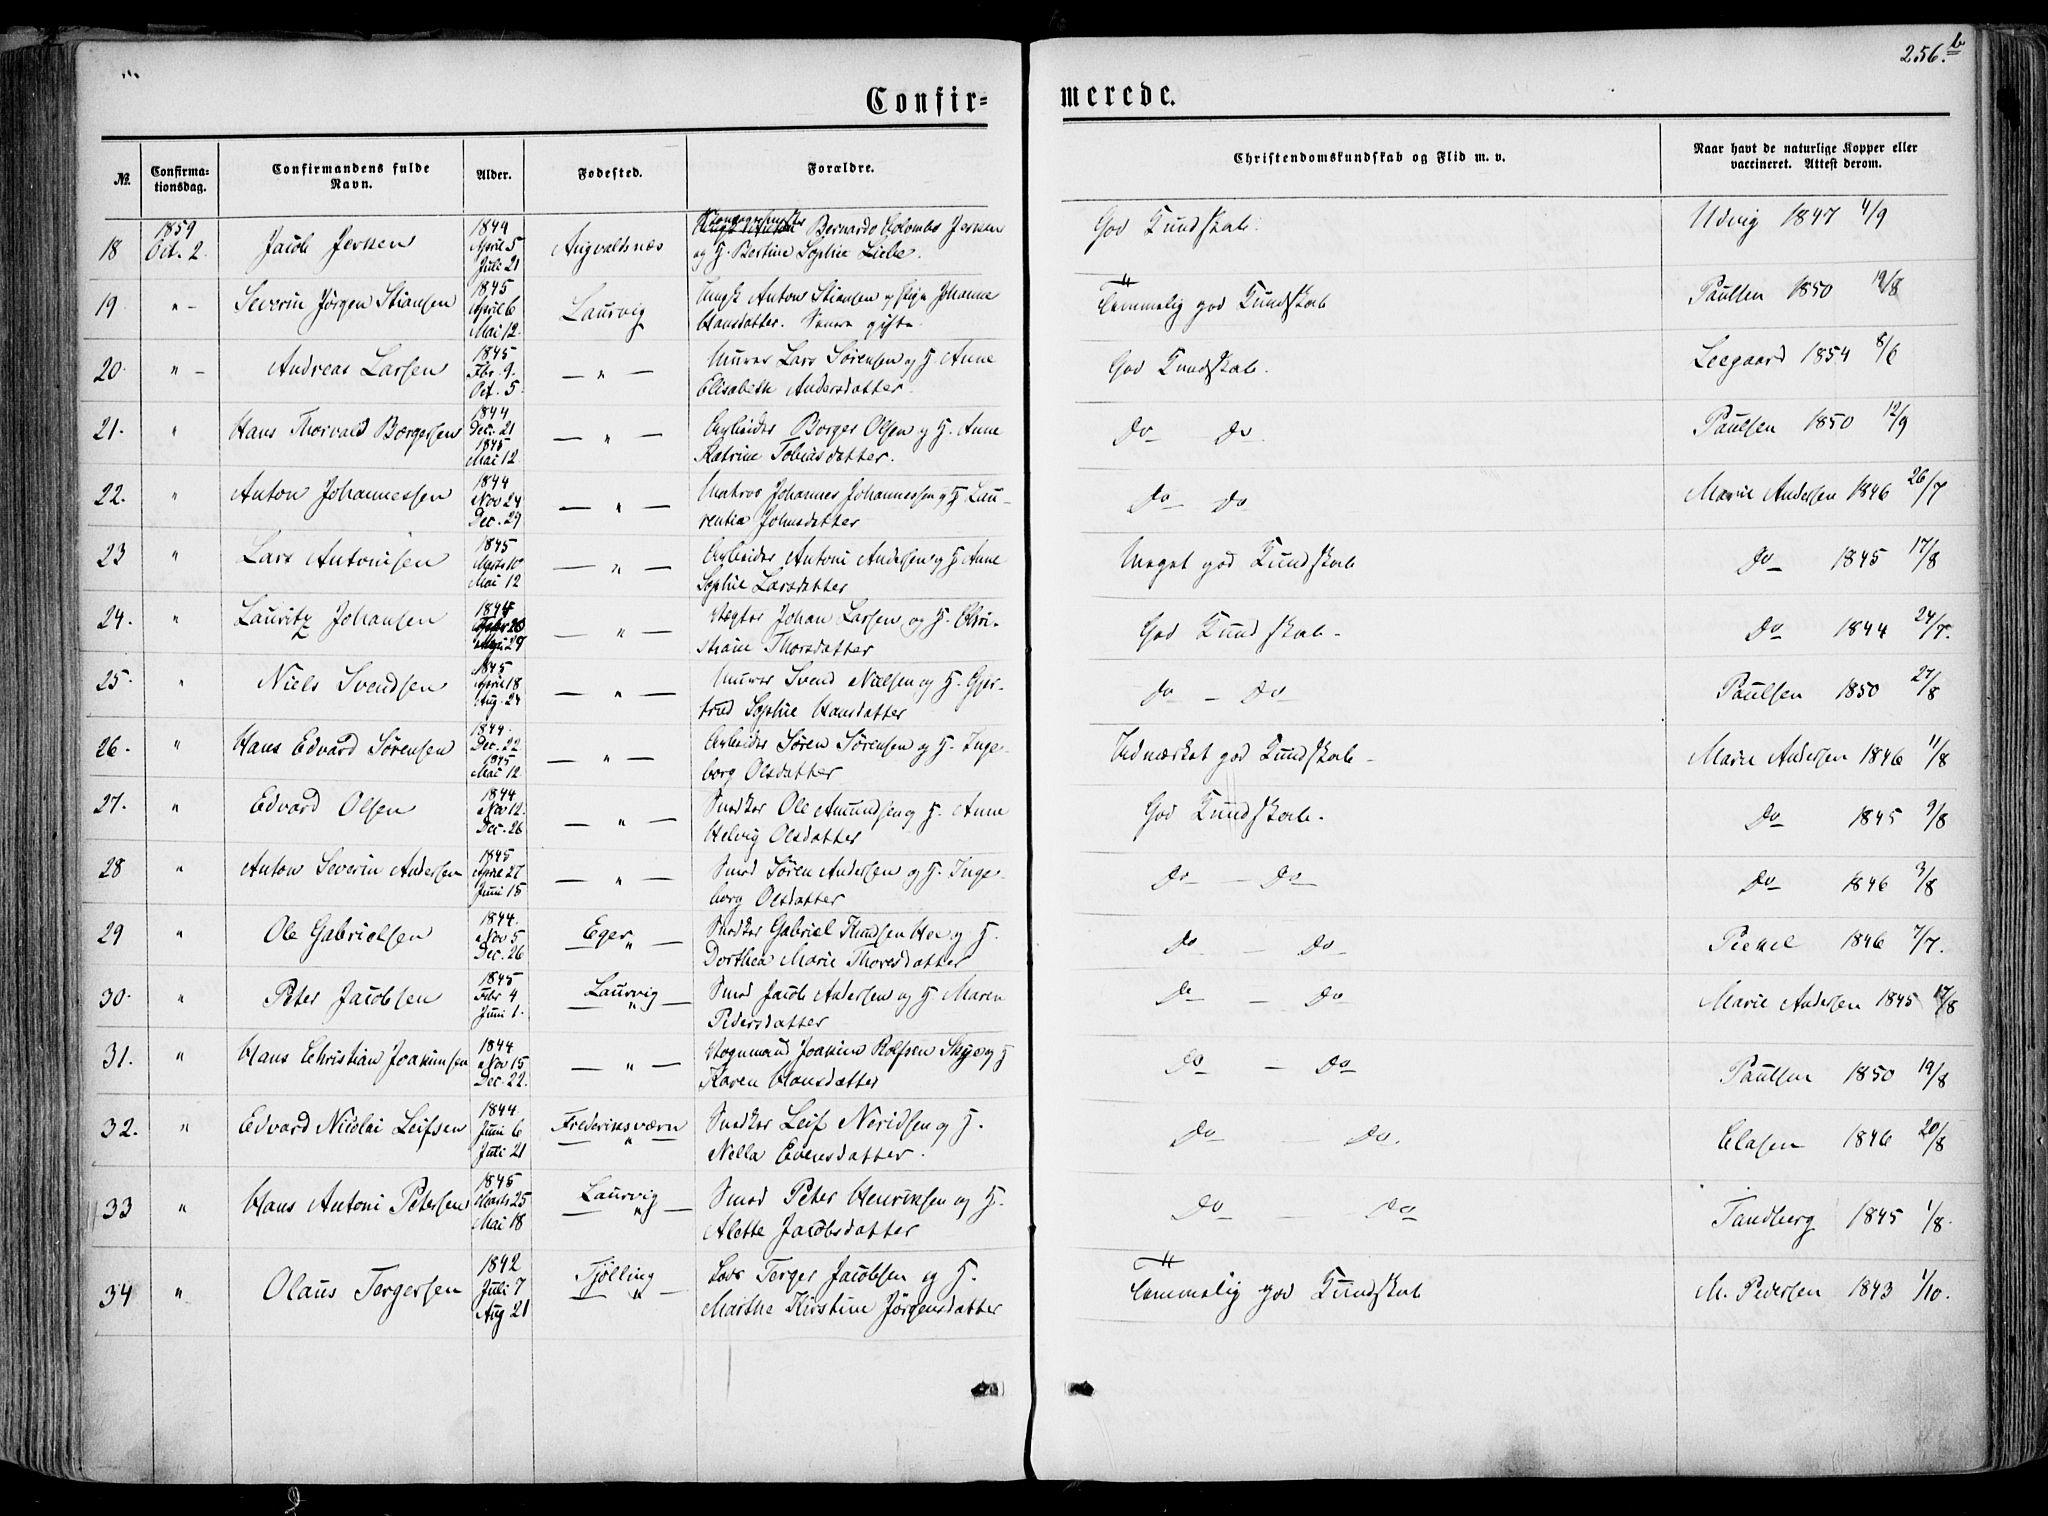 256.b
Confir=
merede.
№.
Confirma=
tionsdag.
Confirmandens fulde
Navn.
Alder.
Fødested.
Forældre.
Christendomskundskab og Flid m. v.
Naar havt de naturlige Kopper eller
vaccineret. Attest derom.
18 1859 Oct. 2. Jacob Jensen 1844 April 5 Juli 21 Augvaldsnæs Bernardo Colombo Jensen
og H. Bertine Sophie Liebe. God Kundskab. Udvig 1847 4/9
19 " - Severin Jörgen Stiansen 1845 April 6 Mai 12. Laurvig Ungk. Anton Stiansen og Pige Johanne
Hansdatter. Senere gifte. Temmelig god Kundskab Paulsen 1850 19/8
20. " - Andreas Larsen 1845 Fbr. 9. Oct. 5. — " — Murer Lars Sörensen og H. Anne
Elisabeth Andersdatter. God Kundskab. Leegaard 1854 8/6
21. " Hans Thorvald Borgersen 1844 Dec. 21 1845 Mai 12. — " — Arbeider Borger Olsen og H. Anne
Katrine Tobiasdatter. Do Do Paulsen 1850 12/9
22. " Anton Johannessen 1844 Nov 24 Dec. 29 — " — Matros Johannes Johannessen og H. Lau-
rentia Johnsdatter Do Do Marie Andersen 1846 26/7
23 " Lars Antonisen 1845 Marts 10 Mai 12 — " — Arbeider Antoni Andersen og H. Anne
Sophie Larsdatter Meget god Kundskab Do 1845 17/8
24. " Lauritz Johansen 1844 — " — Johan Larsen og H. Chri-
stiane Thorsdatter God Kundskab. Do 1844 24/7.
25. " Niels Svendsen 1845 April 18 Aug. 24 — " — Murer Svend Nielsen og H. Gjer-
trud Sophie Hansdatter Do - Do Paulsen 1850 27/8
26. " Hans Edvard Sörensen 1844. Dec. 22 1845 Mai 12. — " — Arbeider Sören Sörensen og H. Inge-
borg Olsdatter Udmærket god Kundskab Marie Andersen 1846 11/8
27. " Edvard Olsen 1844 Nov 12. Dec. 26 — " — Snedker Ole Amundsen og H. Anne
Helvig Olsdatter God Kundskab. Do 1845 9/8
28 " Anton Severin Andersen 1845 April 27 Juni 15 — " — Smed Sören Andersen og H. Inge-
borg Olsdatter Do - Do Do 1846 3/8
29 " Ole Gabrielsen 1844. Nov 5 Dec. 26 Eger Snedker Gabriel Knudsen og H.
Dorthea Marie Thoresdatter Do - Do 1846 7/7.
30. " Peter Jacobsen 1845 Fbr 4 Juni 1. Laurvig Smed Jacob Andersen og H. Maren
Pedersdatter Do - Do Marie Andersen 1845 17/8
31. " Hans Christian Joakimsen 1844 Nov 15 Dec. 22. — " — Vognmand Joakim Rolfsen og H
Karen Hansdatter Do - Do Paulsen 1850 19/8
32. " Edvard Nicolai Leifsen 1844. Juni 6 Juli 21 Frederiksværn Snedker Leif Neridsen og H.
Nella Evensdatter. Do - Do. Clasen 1846 20/8
33 " Hans Antoni Petersen 1845 Marts 25 Mai 18 Laurvig Smed Peter Henriksen og H.
Alette Jacobsdatter Do - Do Tandberg 1845 1/8.
34 " Olaus Tergersen 1842 Juli 7 Aug 21 Tjölling Lods Terger Jacobsen og H.
Marthe Kirstine Jörgensdatter Temmelig god Kundskab M. Pedersen 1843 1/10.